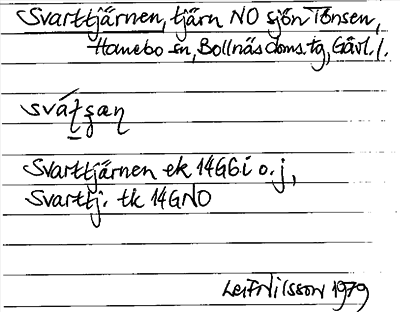 Svarttjärnen, tjärn NO sjön Tönsen,
Hanebo sn, Bollnäs doms. tg, Gävl. l.
Svarttjärnen ek 14G6i o. j,
Svarttj. tk 14GNO
Leif Nilsson 1979